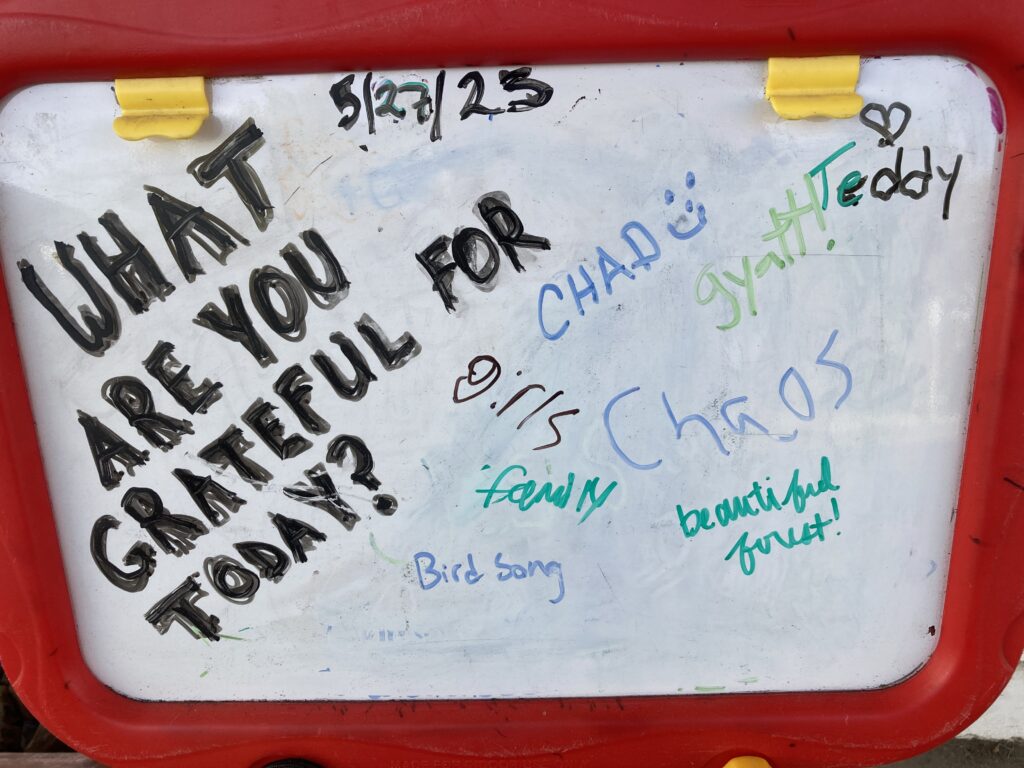 5/27/23
WHAT
ARE YOU
GRATEFUL FOR
TODAY?
Teddy
CHAD
gyatt!
Girls
Chaos
family
beautiful
forest!
Bird Song